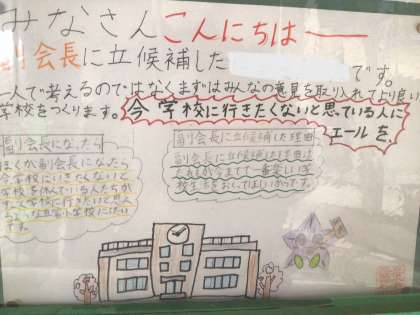 みなさんこんにちはー
副会長に立候補した
です。
一人で考えるのではなくまずはみんなの意見を取り入れてより良い
学校をつくります。今学校に行きたくないと思っている人に
エールを。
副会長になったら
ぼくが副会長になたら
今学校にいきたくないと
学校を休んでいる人たちが
学校に行きたいと思え
学校にしたい
す。
副会長に立候補した理由
副会長に立候補した理由は
一番楽しい学
校生活をおくってほしいからです。